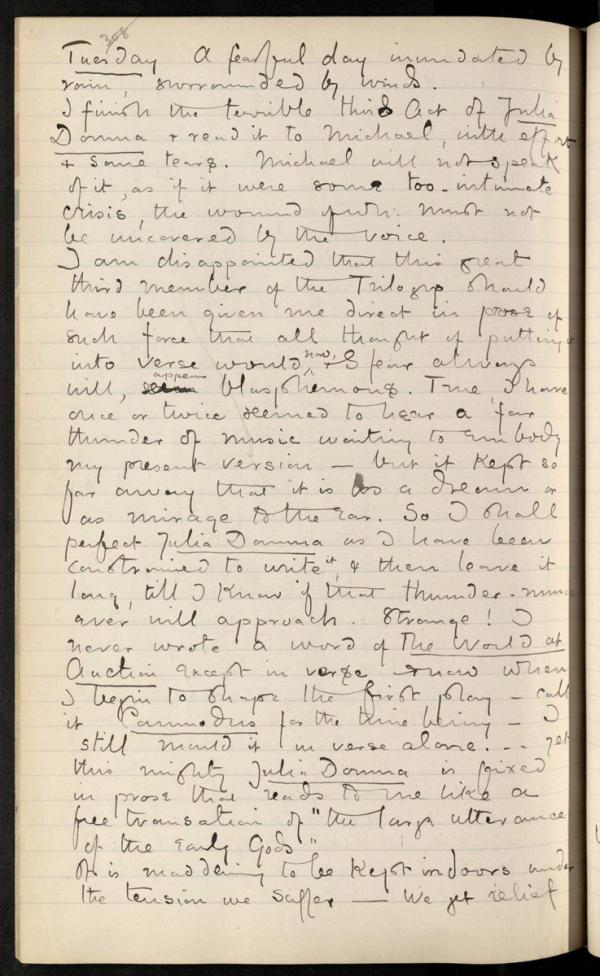 308
Tuesday A fearful day inundated by
rain, surrounded by winds.
I finish the terrible third Act of Julia
Domna & read it to Michael, with effort
& some tears. Michael will not speak
of it, as if it were some too-intimate
crisis, the wound of wh: must not
be uncovered by the voice.
I am disappointed that this great
third member of the Trilogy should
have been given me direct in prose of
such force that all thought of putting it
into verse would, now, & I fear always
will, appear blasphemous. True I have
once or twice seemed to hear a far
thunder of music waiting to embody
my present version — but it kept so
far away that it is as a dream or
as mirage to the ear. So I shall
perfect Julia Domna as I have been
constrained to write it, & then leave it
long, till I know if that thunder-music
ever will approach. Strange! I
never wrote a word of The World at
Auction except in verse & now when
I begin to shape the first play — call
it Commodus for the time being — I
still mould it in verse alone... yet
this mighty Julia Domna is fixed
in prose that reads to me like a
free transation of "the large utterance
of the early Gods"
It is maddening to be kept indoors under
the tension we suffer — We get relief